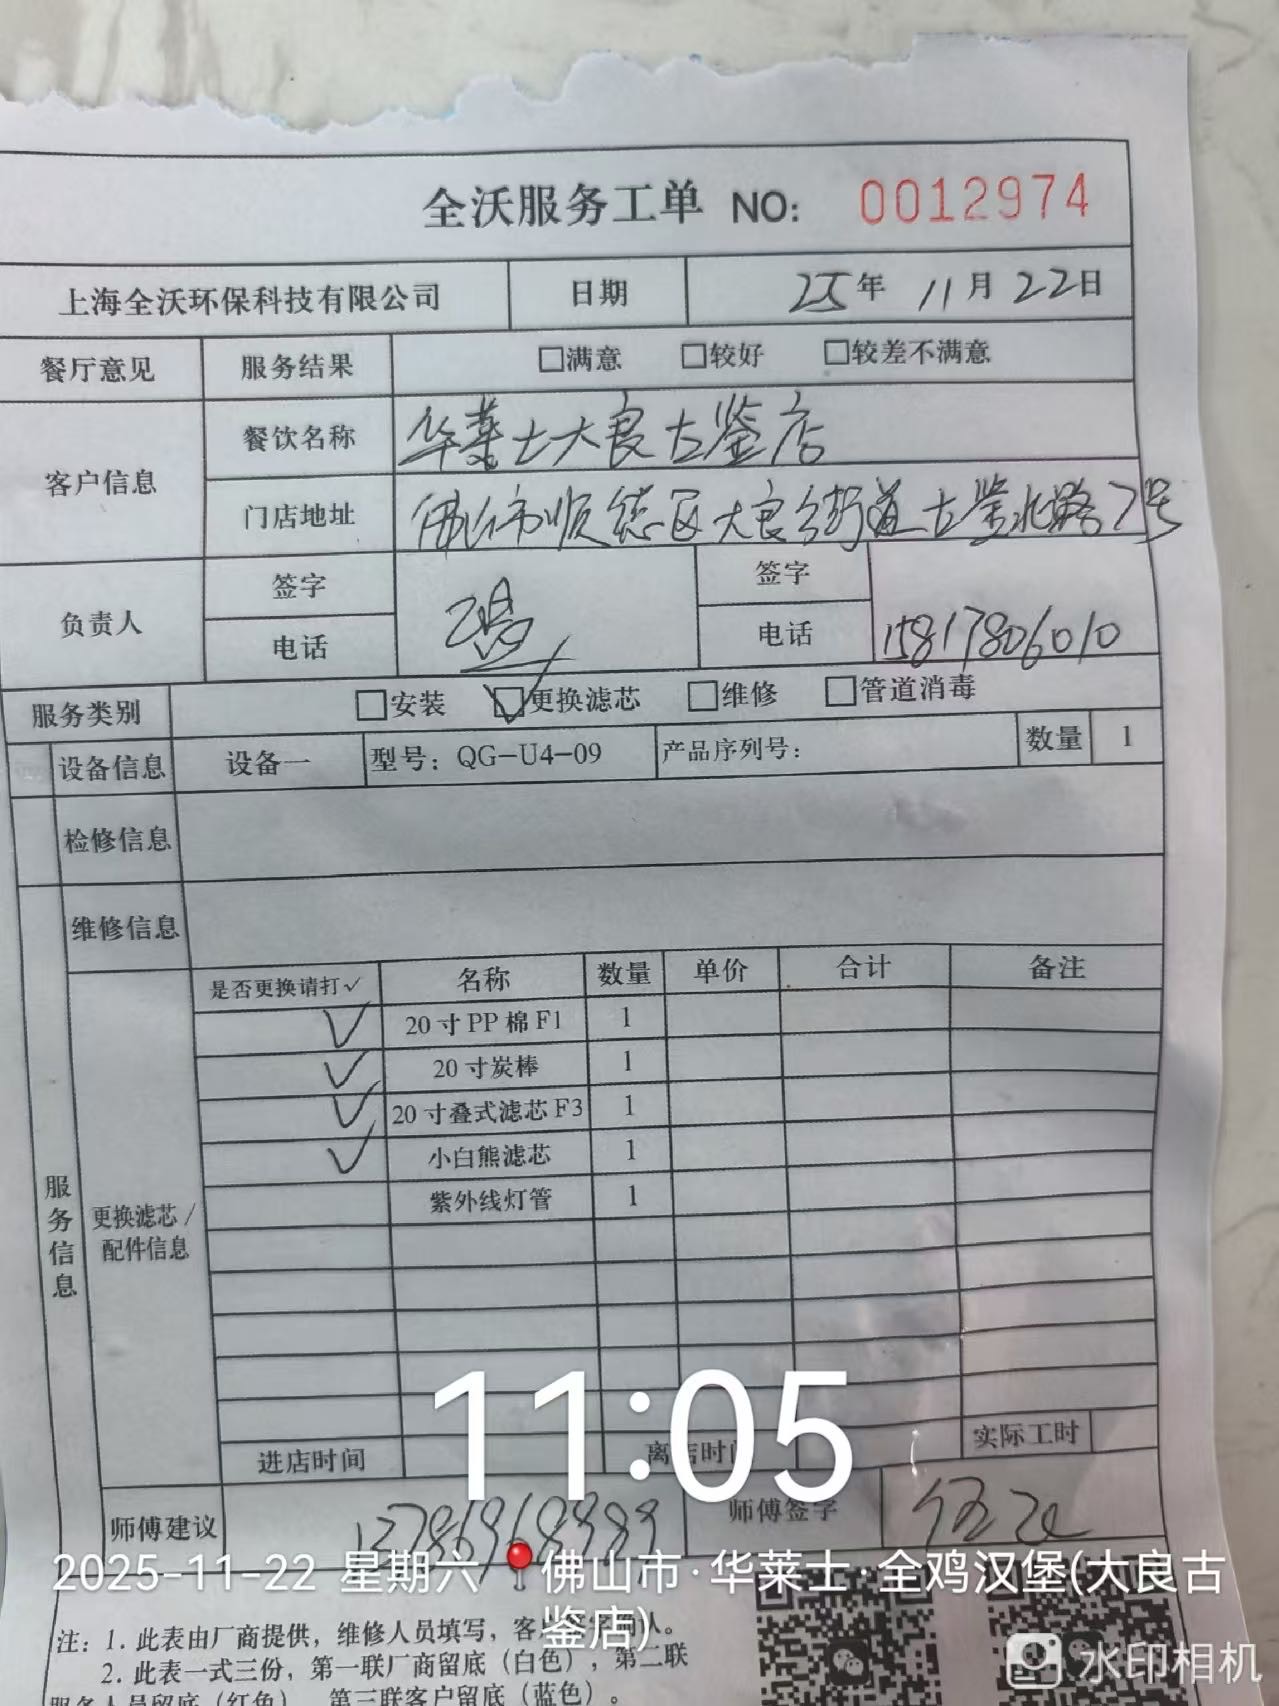 全沃服务工单 NO: 0012974
上海全沃环保科技有限公司 日期 25年 11月 22日
餐厅意见 服务结果 □满意 □较好 □较差不满意
客户信息 餐饮名称 华莱士大良古鉴店
门店地址 佛山市顺德区大良街道古鉴北路7号
负责人 签字 签字
电话 电话 15817806010
服务类别 □安装 ☑更换滤芯 □维修 □管道消毒
设备信息 设备一 型号：QG-U4-09 产品序列号： 数量 1
检修信息
维修信息
是否更换请打✓ 名称 数量 单价 合计 备注
✓ 20寸PP棉F1 1
✓ 20寸炭棒 1
✓ 20寸叠式滤芯F3 1
✓ 小白熊滤芯 1
紫外线灯管 1
服务信息
更换滤芯/
配件信息
11:05
进店时间 离店时间 实际工时
师傅建议 师傅签字
2025-11-22 星期六 佛山市·华莱士·全鸡汉堡(大良古
鉴店)
注：1. 此表由厂商提供，维修人员填写，客
2. 此表一式三份，第一联厂商留底（白色），第二联
服务人员留底（红色），第三联客户留底（蓝色）。
水印相机